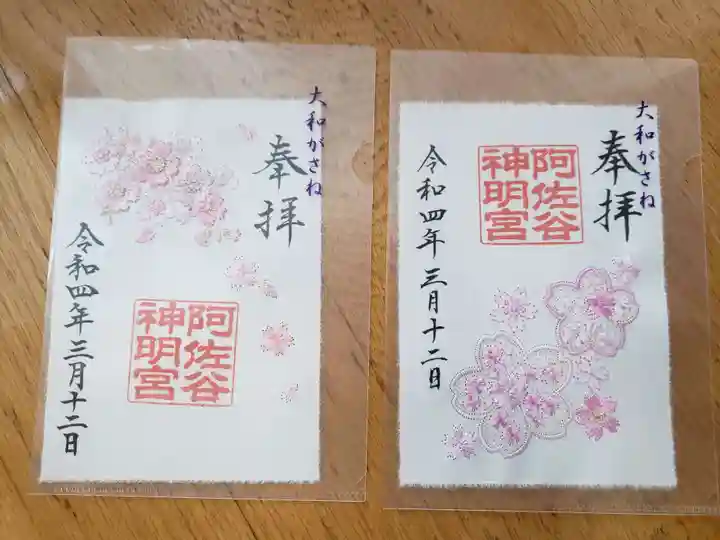 大和がさね
奉拝
阿佐谷
神明宮
令和四年三月十二日
大和がさね
奉拝
阿佐谷
神明宮
令和四年三月十二日